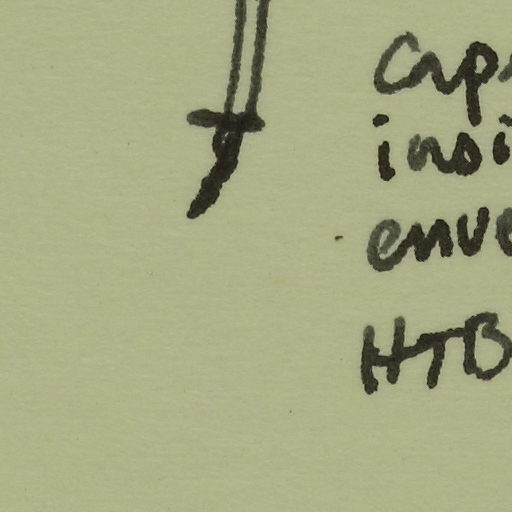 caps
insi
enve
HTB